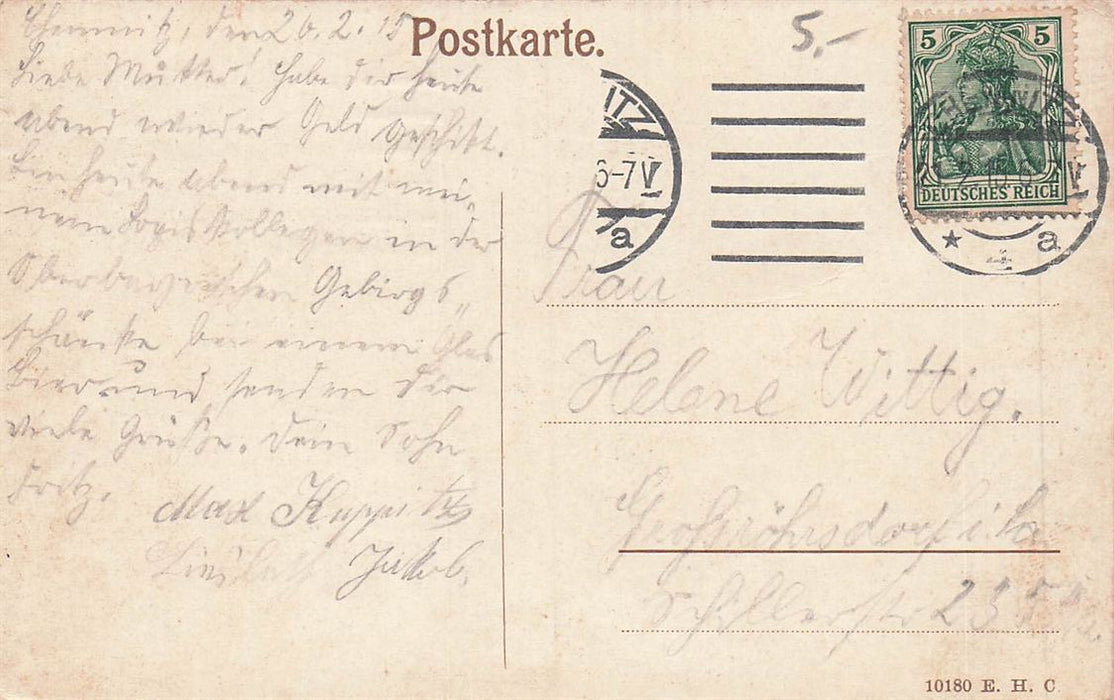 Chemnitz, den 20. 2. 15
Postkarte.
5,-
Liebe Mutter! Habe dir heute
abend wieder Geld geschikt.
Bin heute abend mit mei-
nen Logiskollegen in der
Oberbayrischen Gebirgs-
schänke bei einem Glas
Bier und senden dir
viele Grüße. Dein Sohn
Fritz.
Max Kuppitz
Jakob.
5 5
DEUTSCHES REICH
ITZ
6-7 V
a
CHEMNITZ
V
* 4 a
Frau
Helene Wittig.
Großröhrsdorf i. Sa.
Schillerstr 235
10180 E. H. C.